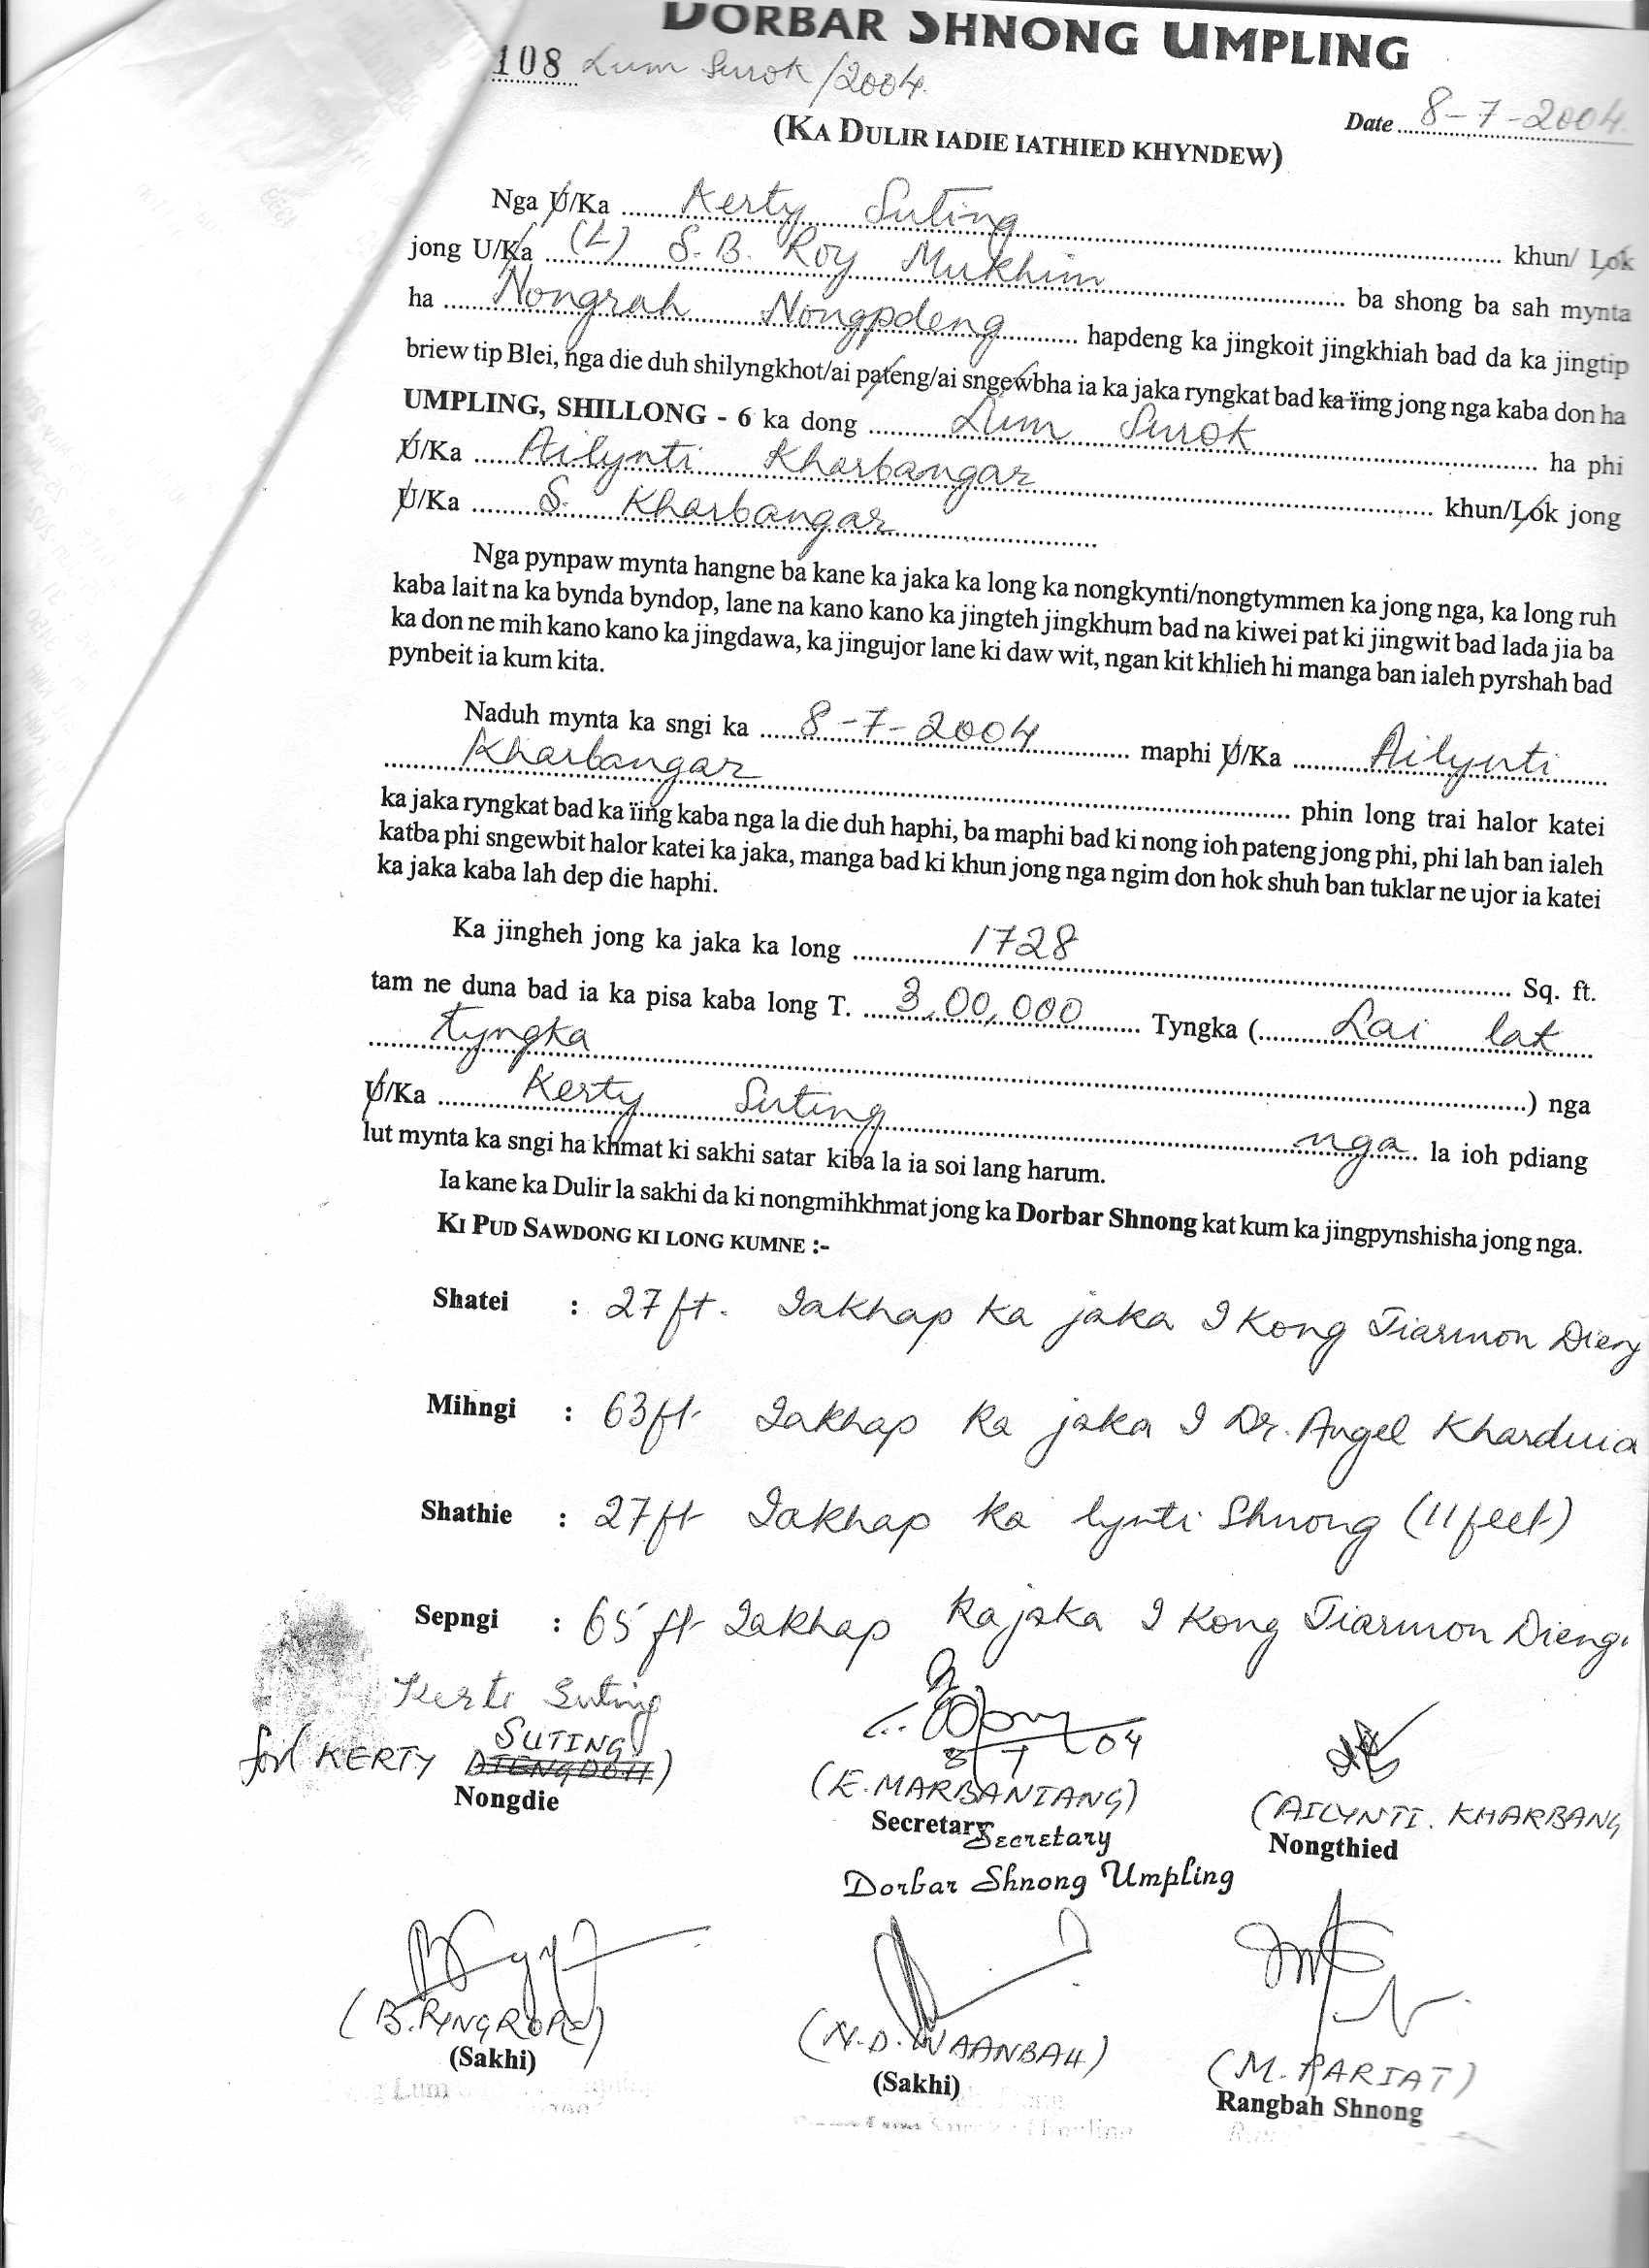 DORBAR SHNONG UMPLING
108 Lum Surok/2004.
Date 8-7-2004.
(KA DULIR IADIE IATHIED KHYNDEW)
Nga U/Ka Kerty Suting khun/ Lok
jong U/Ka (L) S. B. Roy Mukhim ba shong ba sah mynta
ha Nongrah Nongpdeng hapdeng ka jingkoit jingkhiah bad da ka jingtip
briew tip Blei, nga die duh shilyngkhot/ai pateng/ai sngewbha ia ka jaka ryngkat bad ka ïing jong nga kaba don ha
UMPLING, SHILLONG - 6 ka dong Lum Surok ha phi
U/Ka Ailynti Kharbangar khun/Lok jong
U/Ka S. Kharbangar
Nga pynpaw mynta hangne ba kane ka jaka ka long ka nongkynti/nongtymmen ka jong nga, ka long ruh
kaba lait na ka bynda byndop, lane na kano kano ka jingteh jingkhum bad na kiwei pat ki jingwit bad lada jia ba
ka don ne mih kano kano ka jingdawa, ka jingujor lane ki daw wit, ngan kit khlieh hi manga ban ialeh pyrshah bad
pynbeit ia kum kita.
Naduh mynta ka sngi ka 8-7-2004 maphi U/Ka Ailynti
Kharbangar phin long trai halor katei
ka jaka ryngkat bad ka ïing kaba nga la die duh haphi, ba maphi bad ki nong ioh pateng jong phi, phi lah ban ialeh
katba phi sngewbit halor katei ka jaka, manga bad ki khun jong nga ngim don hok shuh ban tuklar ne ujor ia katei
ka jaka kaba lah dep die haphi.
Ka jingheh jong ka jaka ka long 1728 Sq. ft.
tam ne duna bad ia ka pisa kaba long T. 3,00,000 Tyngka (Lai lak
tyngka ) nga
U/Ka Kerty Suting nga la ioh pdiang
lut mynta ka sngi ha khmat ki sakhi satar kiba la ia soi lang harum.
Ia kane ka Dulir la sakhi da ki nongmihkhmat jong ka Dorbar Shnong kat kum ka jingpynshisha jong nga.
KI PUD SAWDONG KI LONG KUMNE :-
Shatei : 27 ft. Iakhap ka jaka I Kong Tiarmon Dieng
Mihngi : 63 ft Iakhap ka jaka I Dr. Angel Kharduia
Shathie : 27 ft Iakhap ka lynti Shnong (11 feet)
Sepngi : 65 ft Iakhap ka jaka I Kong Tiarmon Dieng
Kerti Suting
SUTING
for KERTY DIENGDOH)
Nongdie
8/7/04
(E. MARBANIANG)
Secretary
Secretary
Dorbar Shnong Umpling
(AILYNTI. KHARBANG
Nongthied
(B. RYNGROPE)
(Sakhi)
(N.D. WAANBAH)
(Sakhi)
(M. PARIAT)
Rangbah Shnong